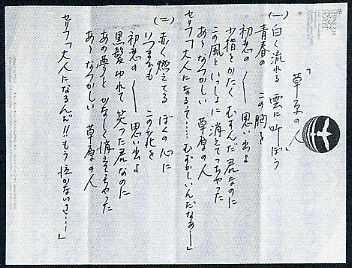 「草原の人」
(一)白く流れる 雲に叫ぼう
青春の この胸を
初恋の 思い出よ
小指をかたく むすんだ君なのに
この風といっしょに 消えてっちゃった
あゝなつかしい 草原の人
セリフ「大人になるって……むずかしいんだなあ…」
(二)赤く燃えてる ぼくの心に
いつまでも この花を
初恋の 思い出よ
黒髪ゆれて 笑った君なのに
あの夢と かなしく消えちゃった
あゝなつかしい 草原の人
セリフ「大人になるんだ!!もう泣かないさ…」